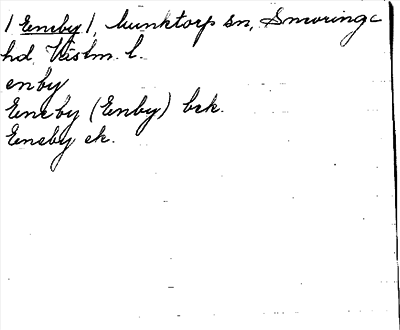 / Eneby /, Munktorp sn, Snevringe
hd, Västm. l.
enby
Eneby (Enby) bek.
Eneby ek.